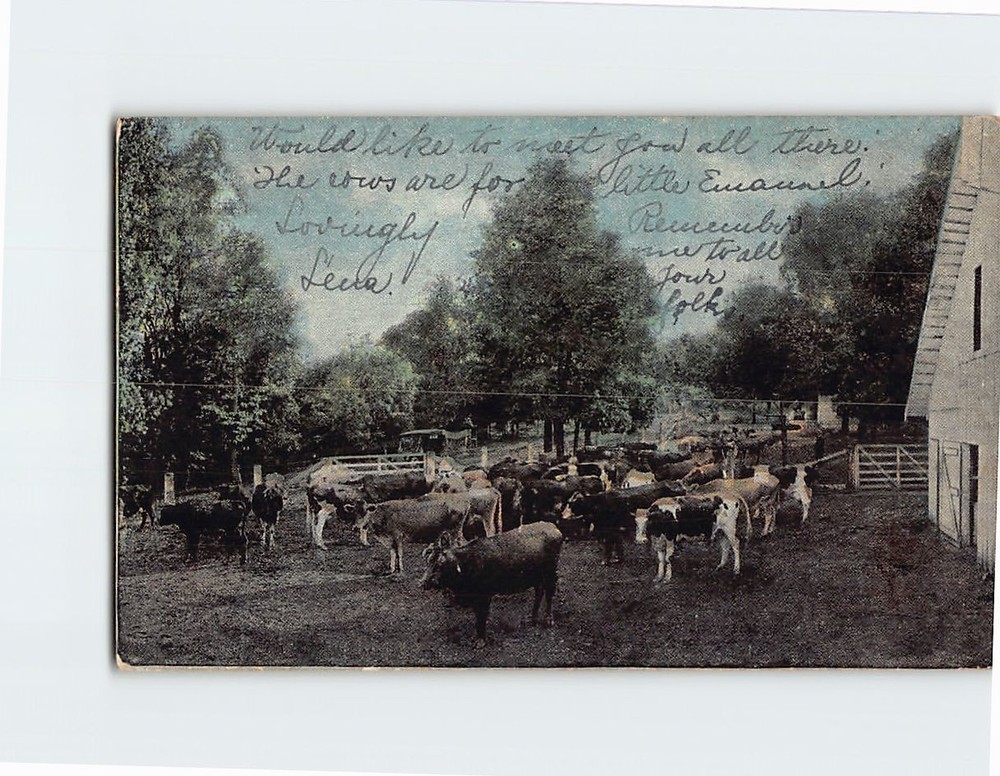 Would like to meet you all there.
The cows are for little Emanuel.
Lovingly
Lena.
Remember
me to all
your
folk